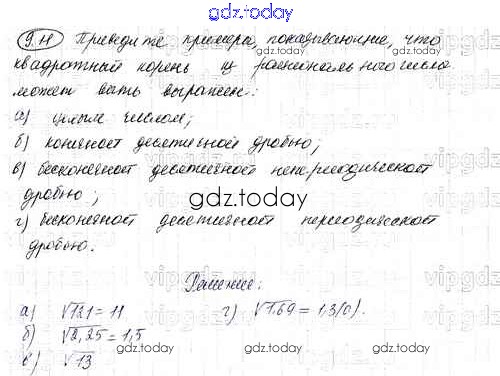 gdz.today
9.Н Приведите примеры, показывающие, что
квадратный корень из рационального числа
может быть выражен:
а) целым числом;
б) конечной десятичной дробью;
в) бесконечной десятичной непериодической
дробью;
gdz.today
г) бесконечной десятичной периодической
дробью.
Решение:
а) √121 = 11 г) √1,69 = 1,3(0).
б) √2,25 = 1,5
gdz.today
в) √13
gdz.today
gdz.today